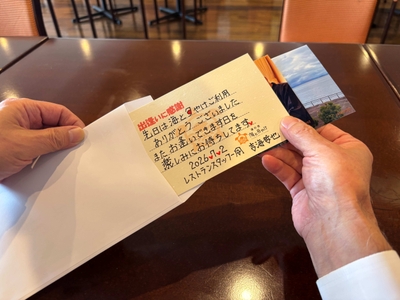 出逢いに感謝
先日は海と夕やけご利用
ありがとうございました
またお逢いできます日を
楽しみにお待ちしてます。
2026♥1♥2
レストランスタッフ一同